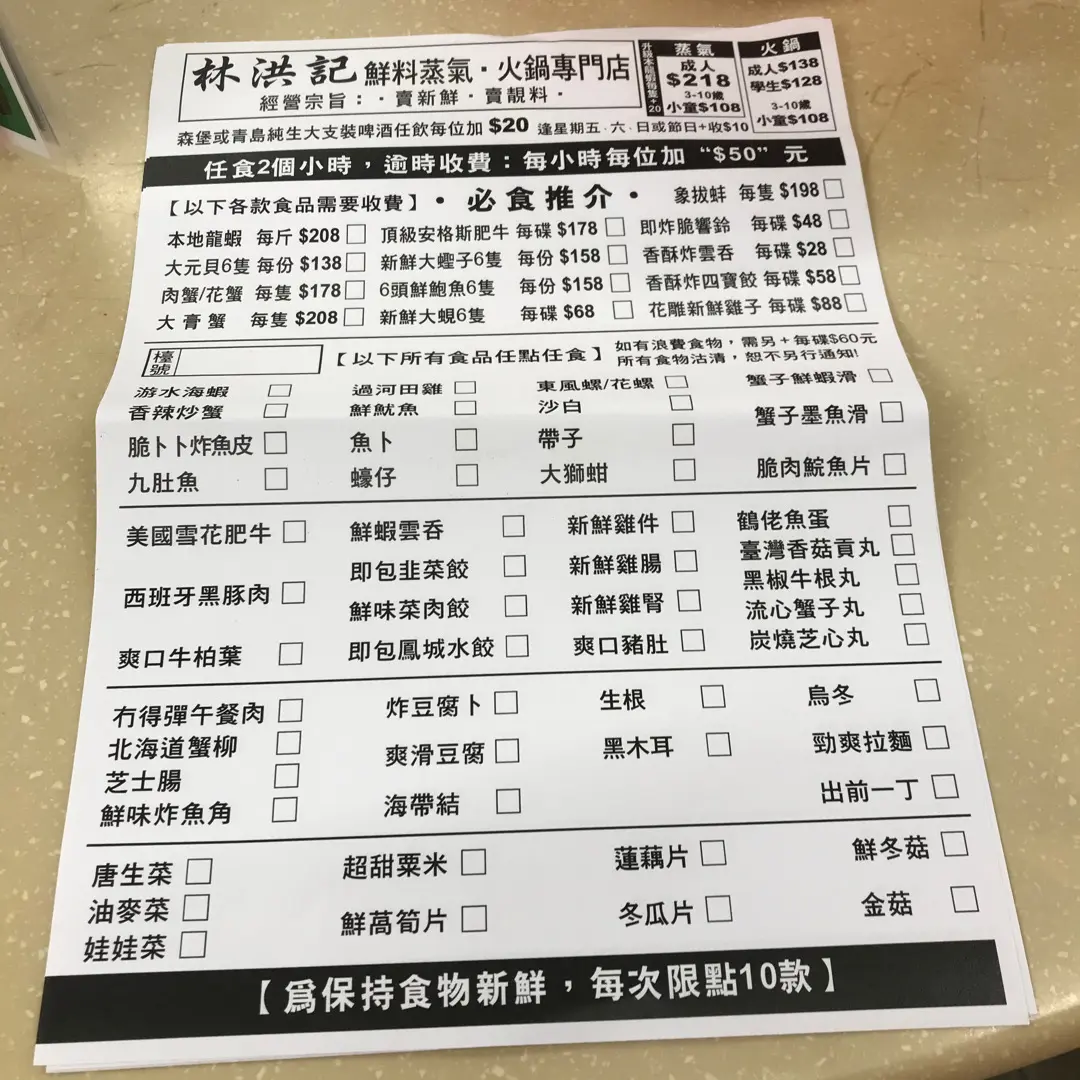 林洪記 鮮料蒸氣·火鍋專門店
經營宗旨：·賣新鮮·賣靚料·
蒸氣
成人
$218
3-10歲
小童$108
火鍋
成人$138
學生$128
3-10歲
小童$108
森堡或青島純生大支裝啤酒任飲每位加 $20 逢星期五·六·日或節日+收$10
任食2個小時，逾時收費：每小時每位加 “$50” 元
【以下各款食品需要收費】·必食推介· 象拔蚌 每隻 $198
本地龍蝦 每斤 $208 頂級安格斯肥牛 每碟 $178 即炸脆響鈴 每碟 $48
大元貝6隻 每份 $138 新鮮大蟶子6隻 每份 $158 香酥炸雲吞 每碟 $28
肉蟹/花蟹 每隻 $178 6頭鮮鮑魚6隻 每份 $158 香酥炸四寶餃 每碟 $58
大膏蟹 每隻 $208 新鮮大蜆6隻 每碟 $68 花雕新鮮雞子 每碟 $88
檯號 【以下所有食品任點任食】 如有浪費食物，需另+每碟$60元
所有食物沽清，恕不另行通知!
游水海蝦 過河田雞 東風螺/花螺 蟹子鮮蝦滑
香辣炒蟹 鮮魷魚 沙白 蟹子墨魚滑
脆卜卜炸魚皮 魚卜 帶子
九肚魚 蠔仔 大獅蚶 脆肉鯇魚片
美國雪花肥牛 鮮蝦雲吞 新鮮雞件 鶴佬魚蛋
即包韭菜餃 新鮮雞腸 臺灣香菇貢丸
黑椒牛根丸
西班牙黑豚肉 鮮味菜肉餃 新鮮雞腎 流心蟹子丸
爽口牛柏葉 即包鳳城水餃 爽口豬肚 炭燒芝心丸
冇得彈午餐肉 炸豆腐卜 生根 烏冬
北海道蟹柳 爽滑豆腐 黑木耳 勁爽拉麵
芝士腸 出前一丁
鮮味炸魚角 海帶結
唐生菜 超甜粟米 蓮藕片 鮮冬菇
油麥菜 鮮萵筍片 冬瓜片 金菇
娃娃菜
【爲保持食物新鮮，每次限點10款】